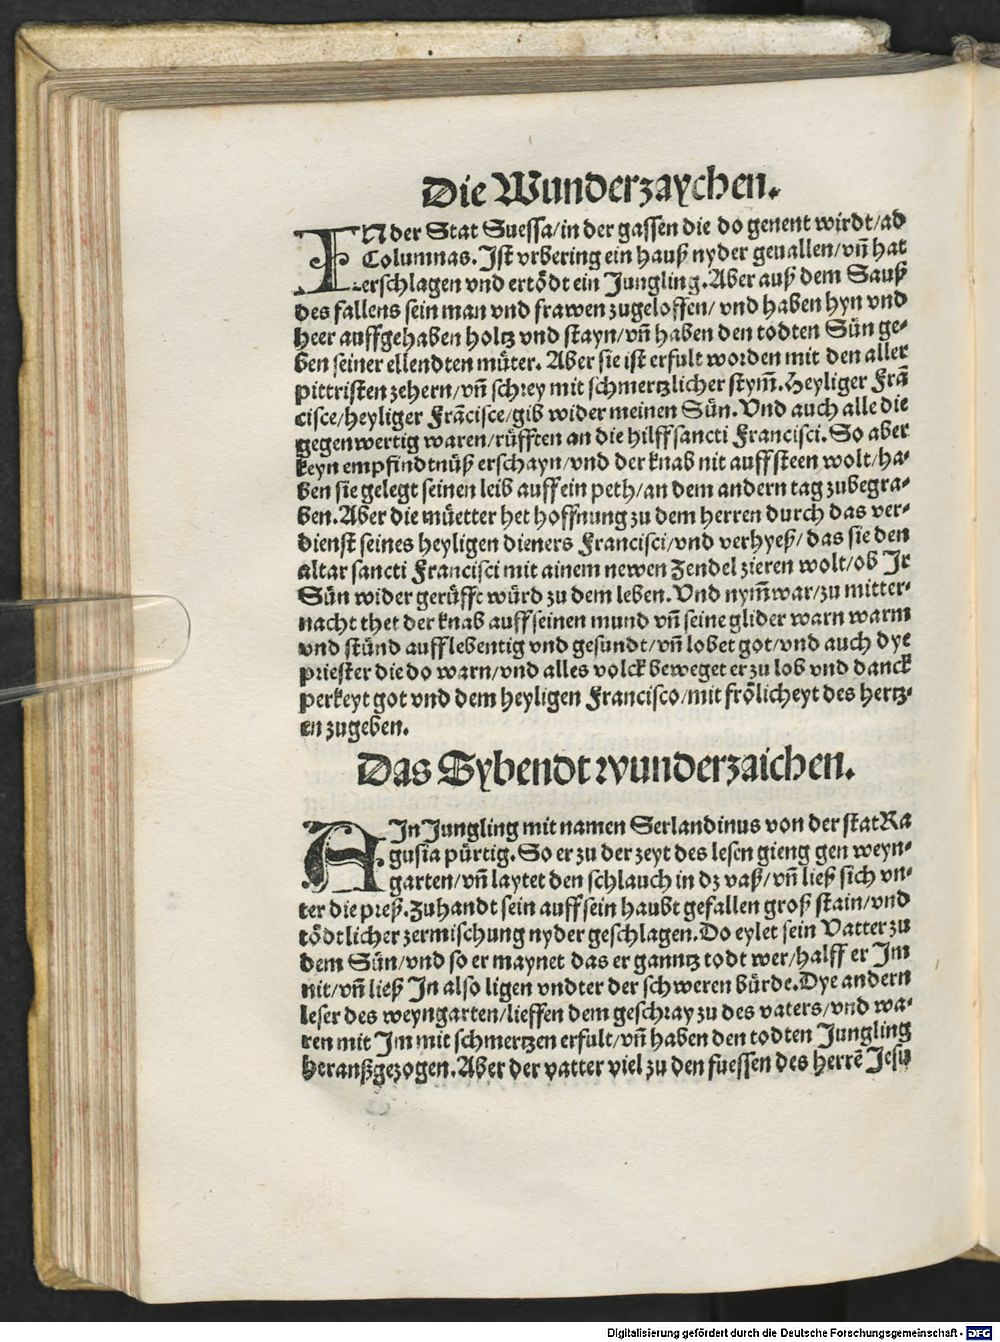 Die Wunderzaychen.
IN der Stat Suessa/in der gassen die do genent wirdt/ad
Columnas. Jst vrbering ein hauß nyder geuallen/vñ hat
erschlagen vnd ertödt ein Jungling. Aber auß dem Sauß
des fallens sein man vnd frawen zugeloffen/ vnd haben hyn vnd
heer auffgehaben holtz vnd stayn/vñ haben den todten Sün ge-
ben seiner ellendten müter. Aber sie ist erfult worden mit den aller
pittristen zehern/vñ schrey mit schmertzlicher stym̃. Heyliger Frã
cisce/heyliger Frãcisce/gib wider meinen Sün. Vnd auch alle die
gegenwertig waren/rüfften an die hilff sancti Francisci. So aber
keyn empfindtnüß erschayn/vnd der knab nit auffsteen wolt/ha-
ben sie gelegt seinen leib auff ein peth/an dem andern tag zubegra-
ben. Aber die müetter het hoffnung zu dem herren durch das ver-
dienst seines heyligen dieners Francisci/vnd verhyeß/ das sie den
altar sancti Francisci mit ainem newen Zendel zieren wolt/ob Jr
Sün wider gerüfft würd zu dem leben. Vnd nym̃war/zu mitter-
nacht thet der knab auff seinen mund vñ seine glider warn warm
vnd stünd auff lebentig vnd gesundt/vñ lobet got/vnd auch dye
priester die do warn/vnd alles volck beweget er zu lob vnd danck
perkeyt got vnd dem heyligen Francisco/mit frölicheyt des hertz-
en zugeben.
Das Sybendt wunderzaichen.
AIn Jungling mit namen Gerlandinus von der stat Ra
gusia pürtig. So er zu der zeyt des lesen gieng gen weyn-
garten/vñ laytet den schlauch in dz vaß/vñ ließ sich vn-
ter die preß. Zuhandt sein auff sein haubt gefallen groß stain/vnd
tödtlicher zermischung nyder geschlagen. Do eylet sein Vatter zu
dem Sün/vnd so er maynet das er ganntz todt wer/halff er Jm
nit/vñ ließ Jn also ligen vndter der schweren bürde. Dye andern
leser des weyngarten/lieffen dem geschray zu des vaters/vnd wa-
ren mit Jm mit schmertzen erfult/vñ haben den todten Jungling
heranßgezogen. Aber der vatter viel zu den fuessen des herrẽ Jesu
Digitalisierung gefördert durch die Deutsche Forschungsgemeinschaft - DFG